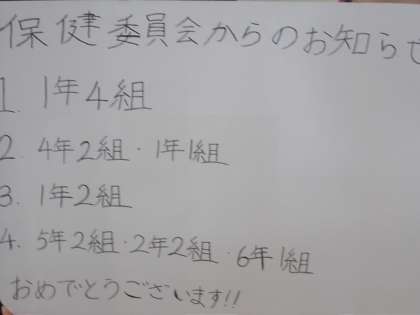 保健委員会からのお知らせ
1. 1年4組
2. 4年2組・1年1組
3. 1年2組
4. 5年2組・2年2組・6年1組
おめでとうございます!!